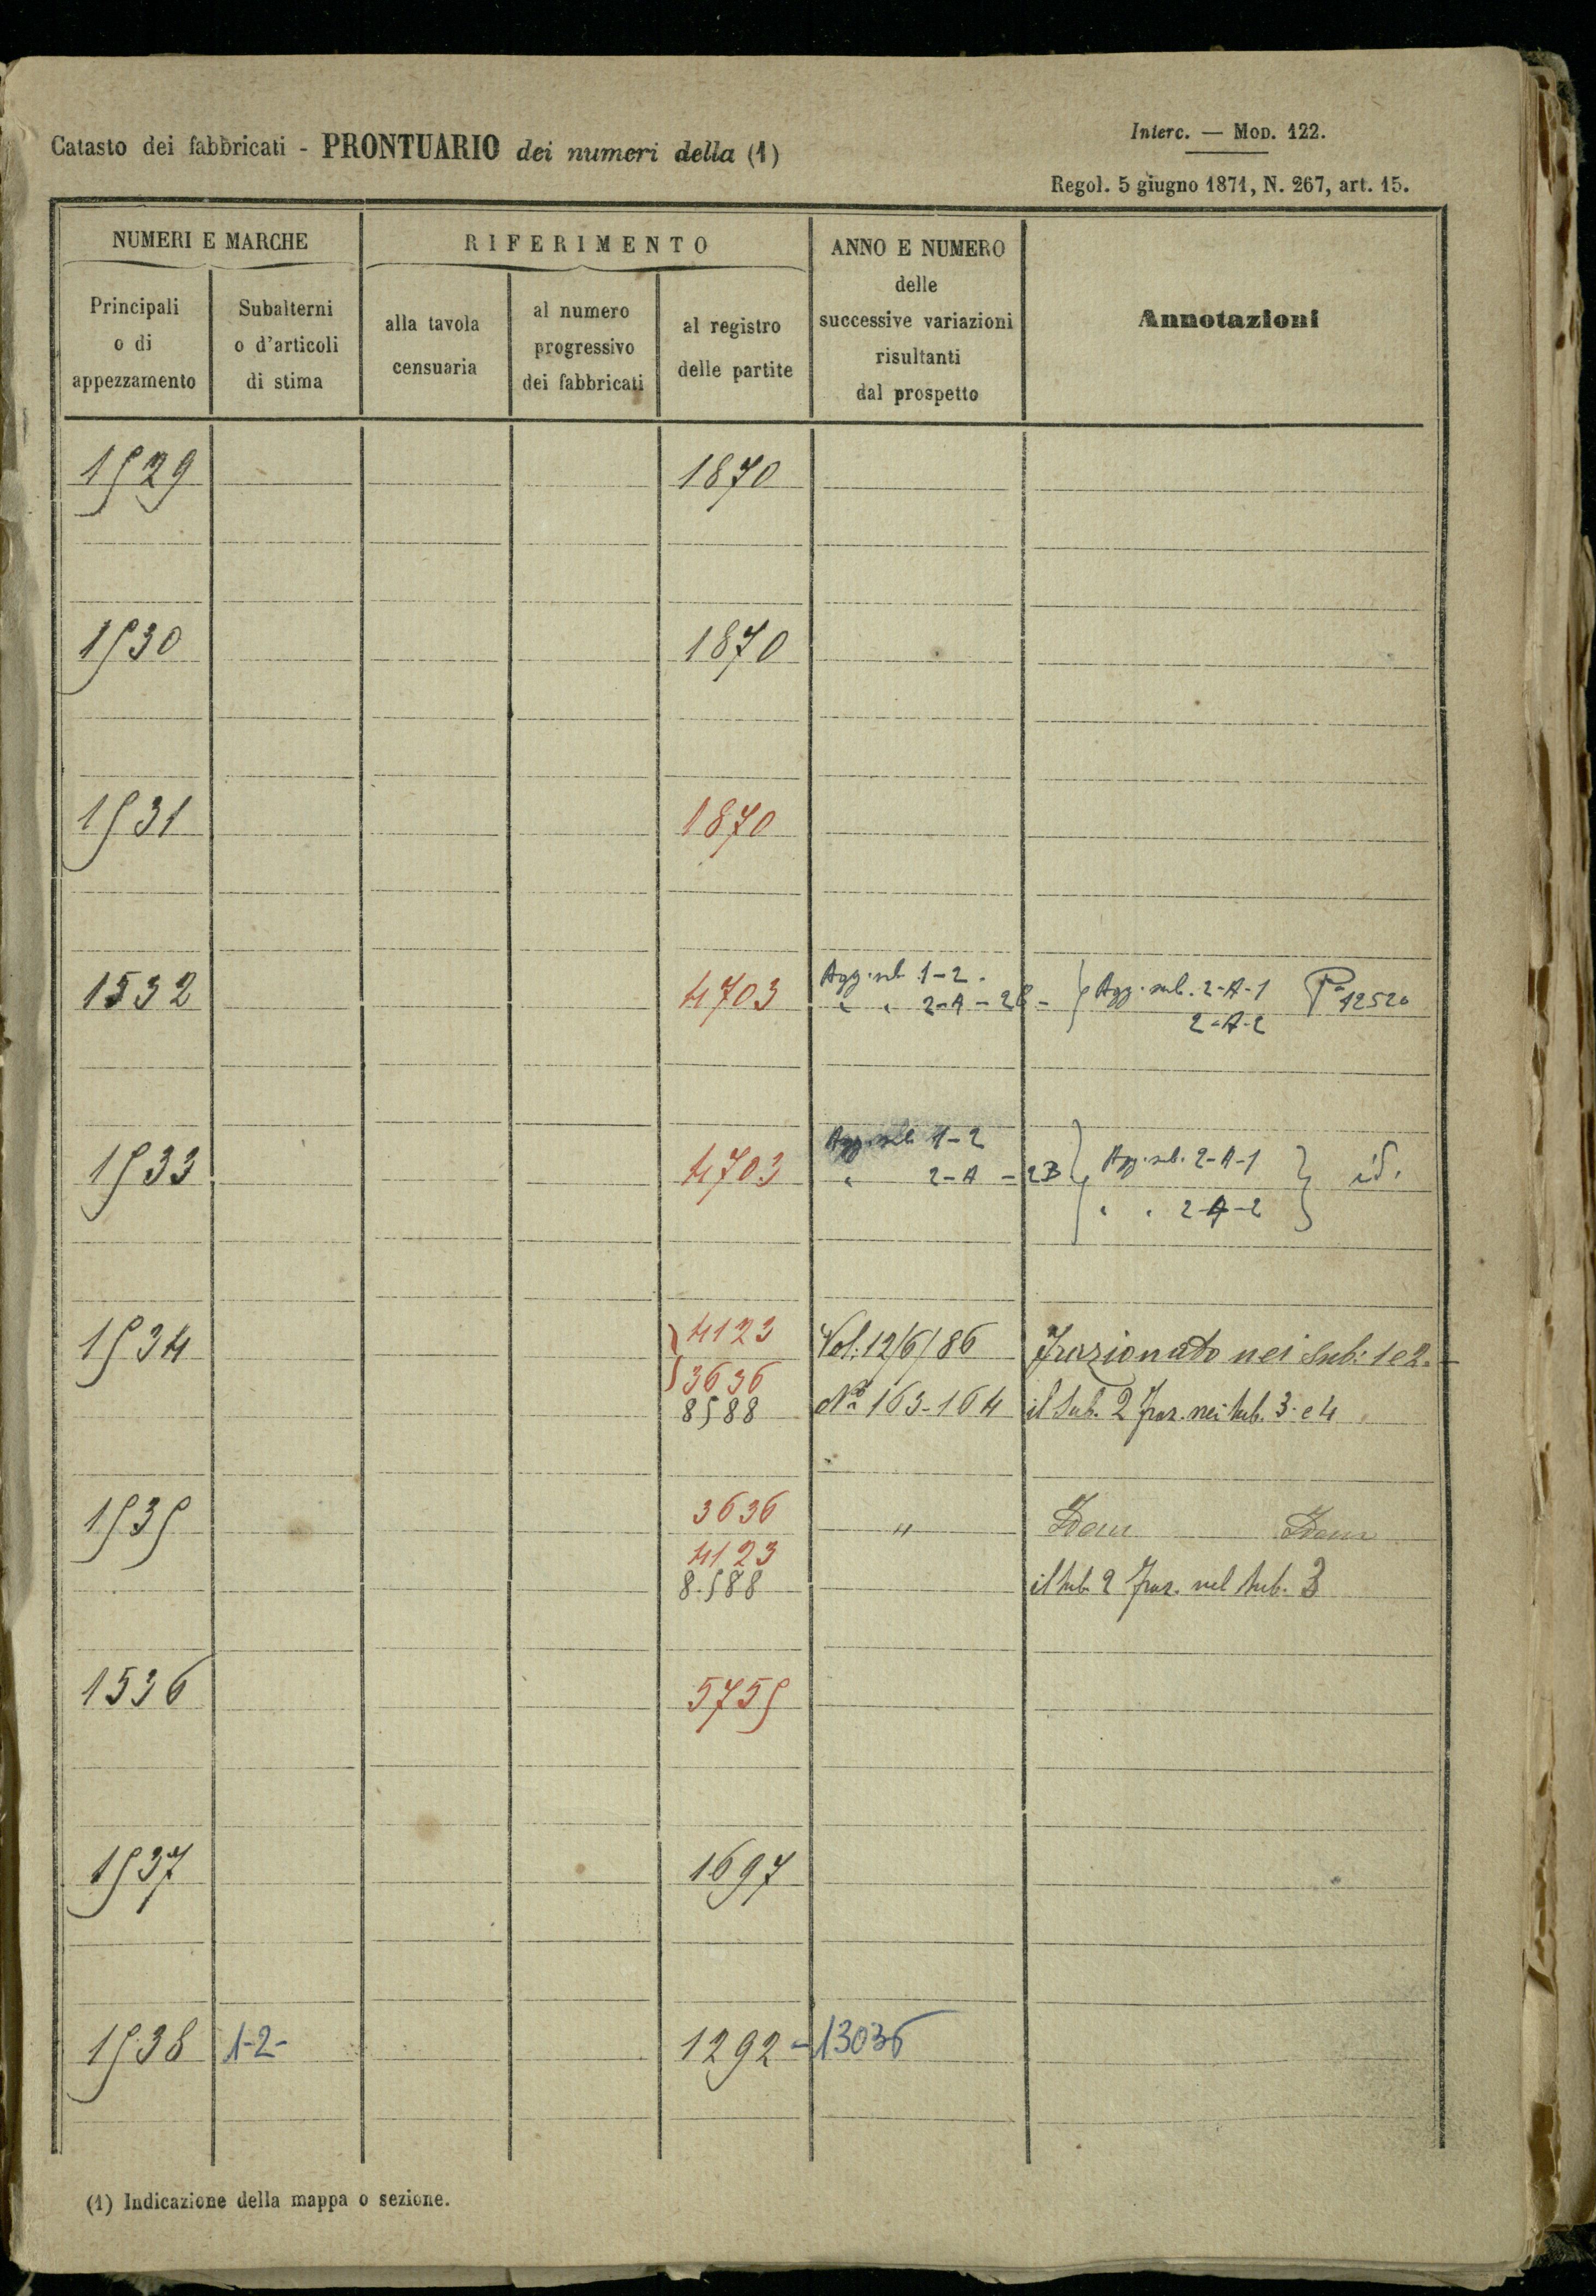 Catasto dei fabbricati - PRONTUARIO dei numeri della (1)
Interc. — Mod. 122.
Regol. 5 giugno 1871, N. 267, art. 15.
NUMERI E MARCHE
RIFERIMENTO
ANNO E NUMERO
delle
successive variazioni
risultanti
dal prospetto
Annotazioni
Principali
o di
appezzamento
Subalterni
o d'articoli
di stima
alla tavola
censuaria
al numero
progressivo
dei fabbricati
al registro
delle partite
1529 1870
1530 1870
1531 1870
Agg. sub. 1-2.
1532 4703 " " 2-A - 2B - } Agg. sub. 2-A-1 Pa 12520
2-A-2
Agg. sub. 1-2
1533 4703 " 2-A - 2B { Agg. sub. 2-A-1 } id.
" " 2-A-2
1534 { 4123 Vol. 12/6/86 Frazionato nei sub: 1 e 2.-
3636
8588 No 163-164 il sub. 2 fraz. nei sub. 3 e 4
3636
1535 " Idem Idem
4123
8588 il sub. 2 fraz. nel sub. 3
1536 5755
1537 1697
1538 1-2- 1292 - 13036
(1) Indicazione della mappa o sezione.